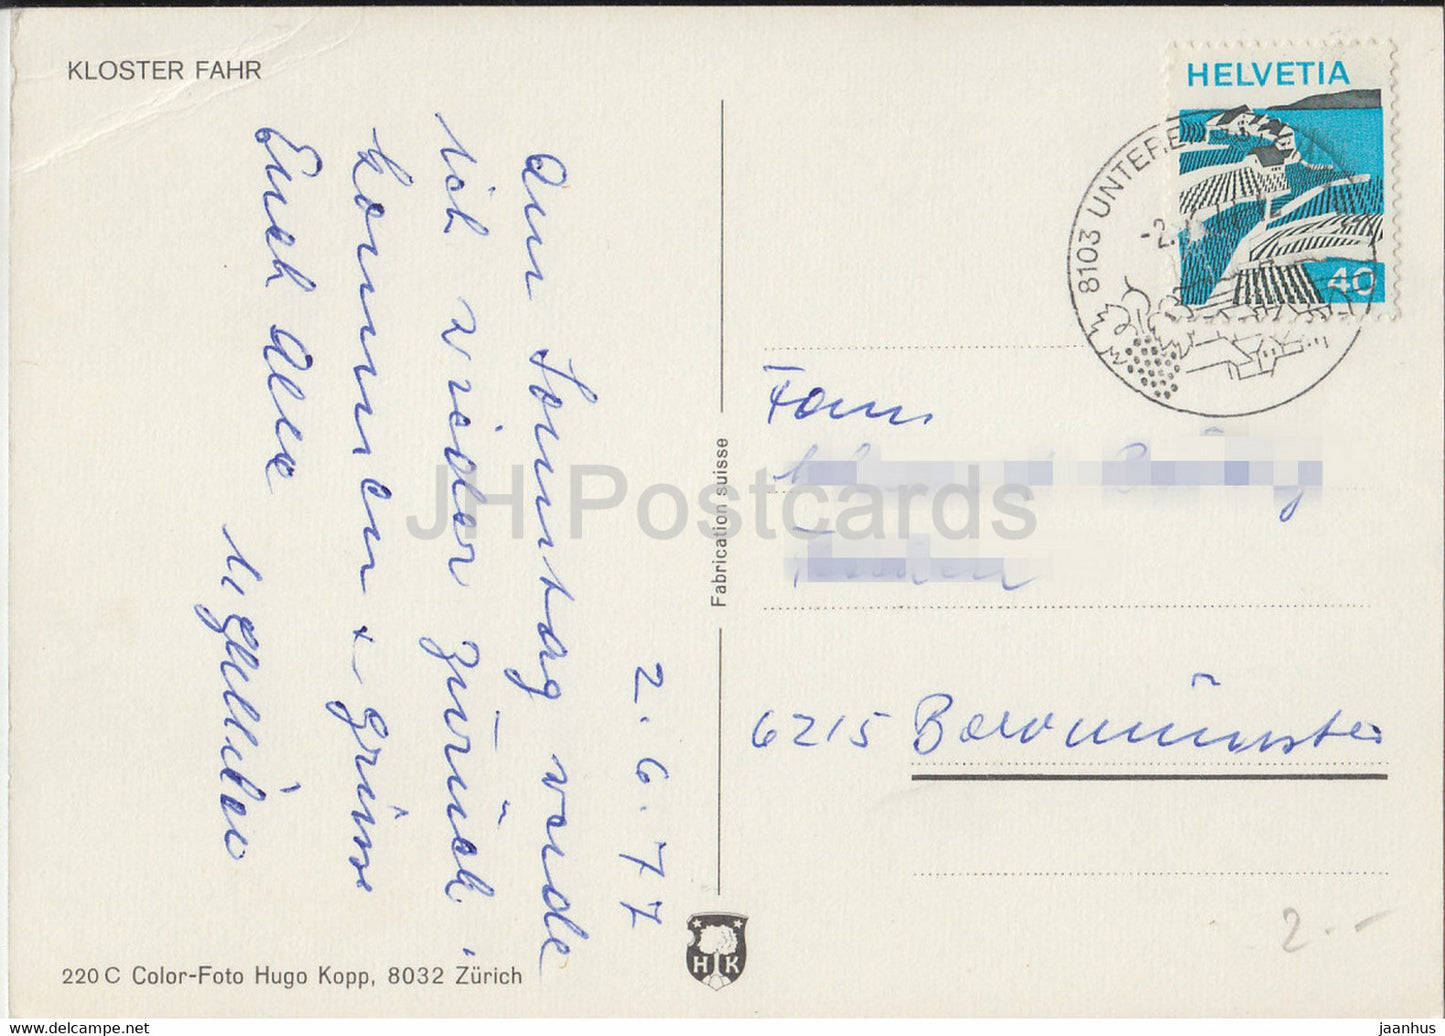 KLOSTER FAHR
HELVETIA
40
8103 UNTERE
-2.
2.6.77
Am Sonntag werde
ich wieder zurück
kommen + grüsse
Euch Alle
Fam
6215 Beromünster
Fabrication suisse
HK
220 C Color-Foto Hugo Kopp, 8032 Zürich
2.-
JH Postcards
delcampe.net
jaanhus